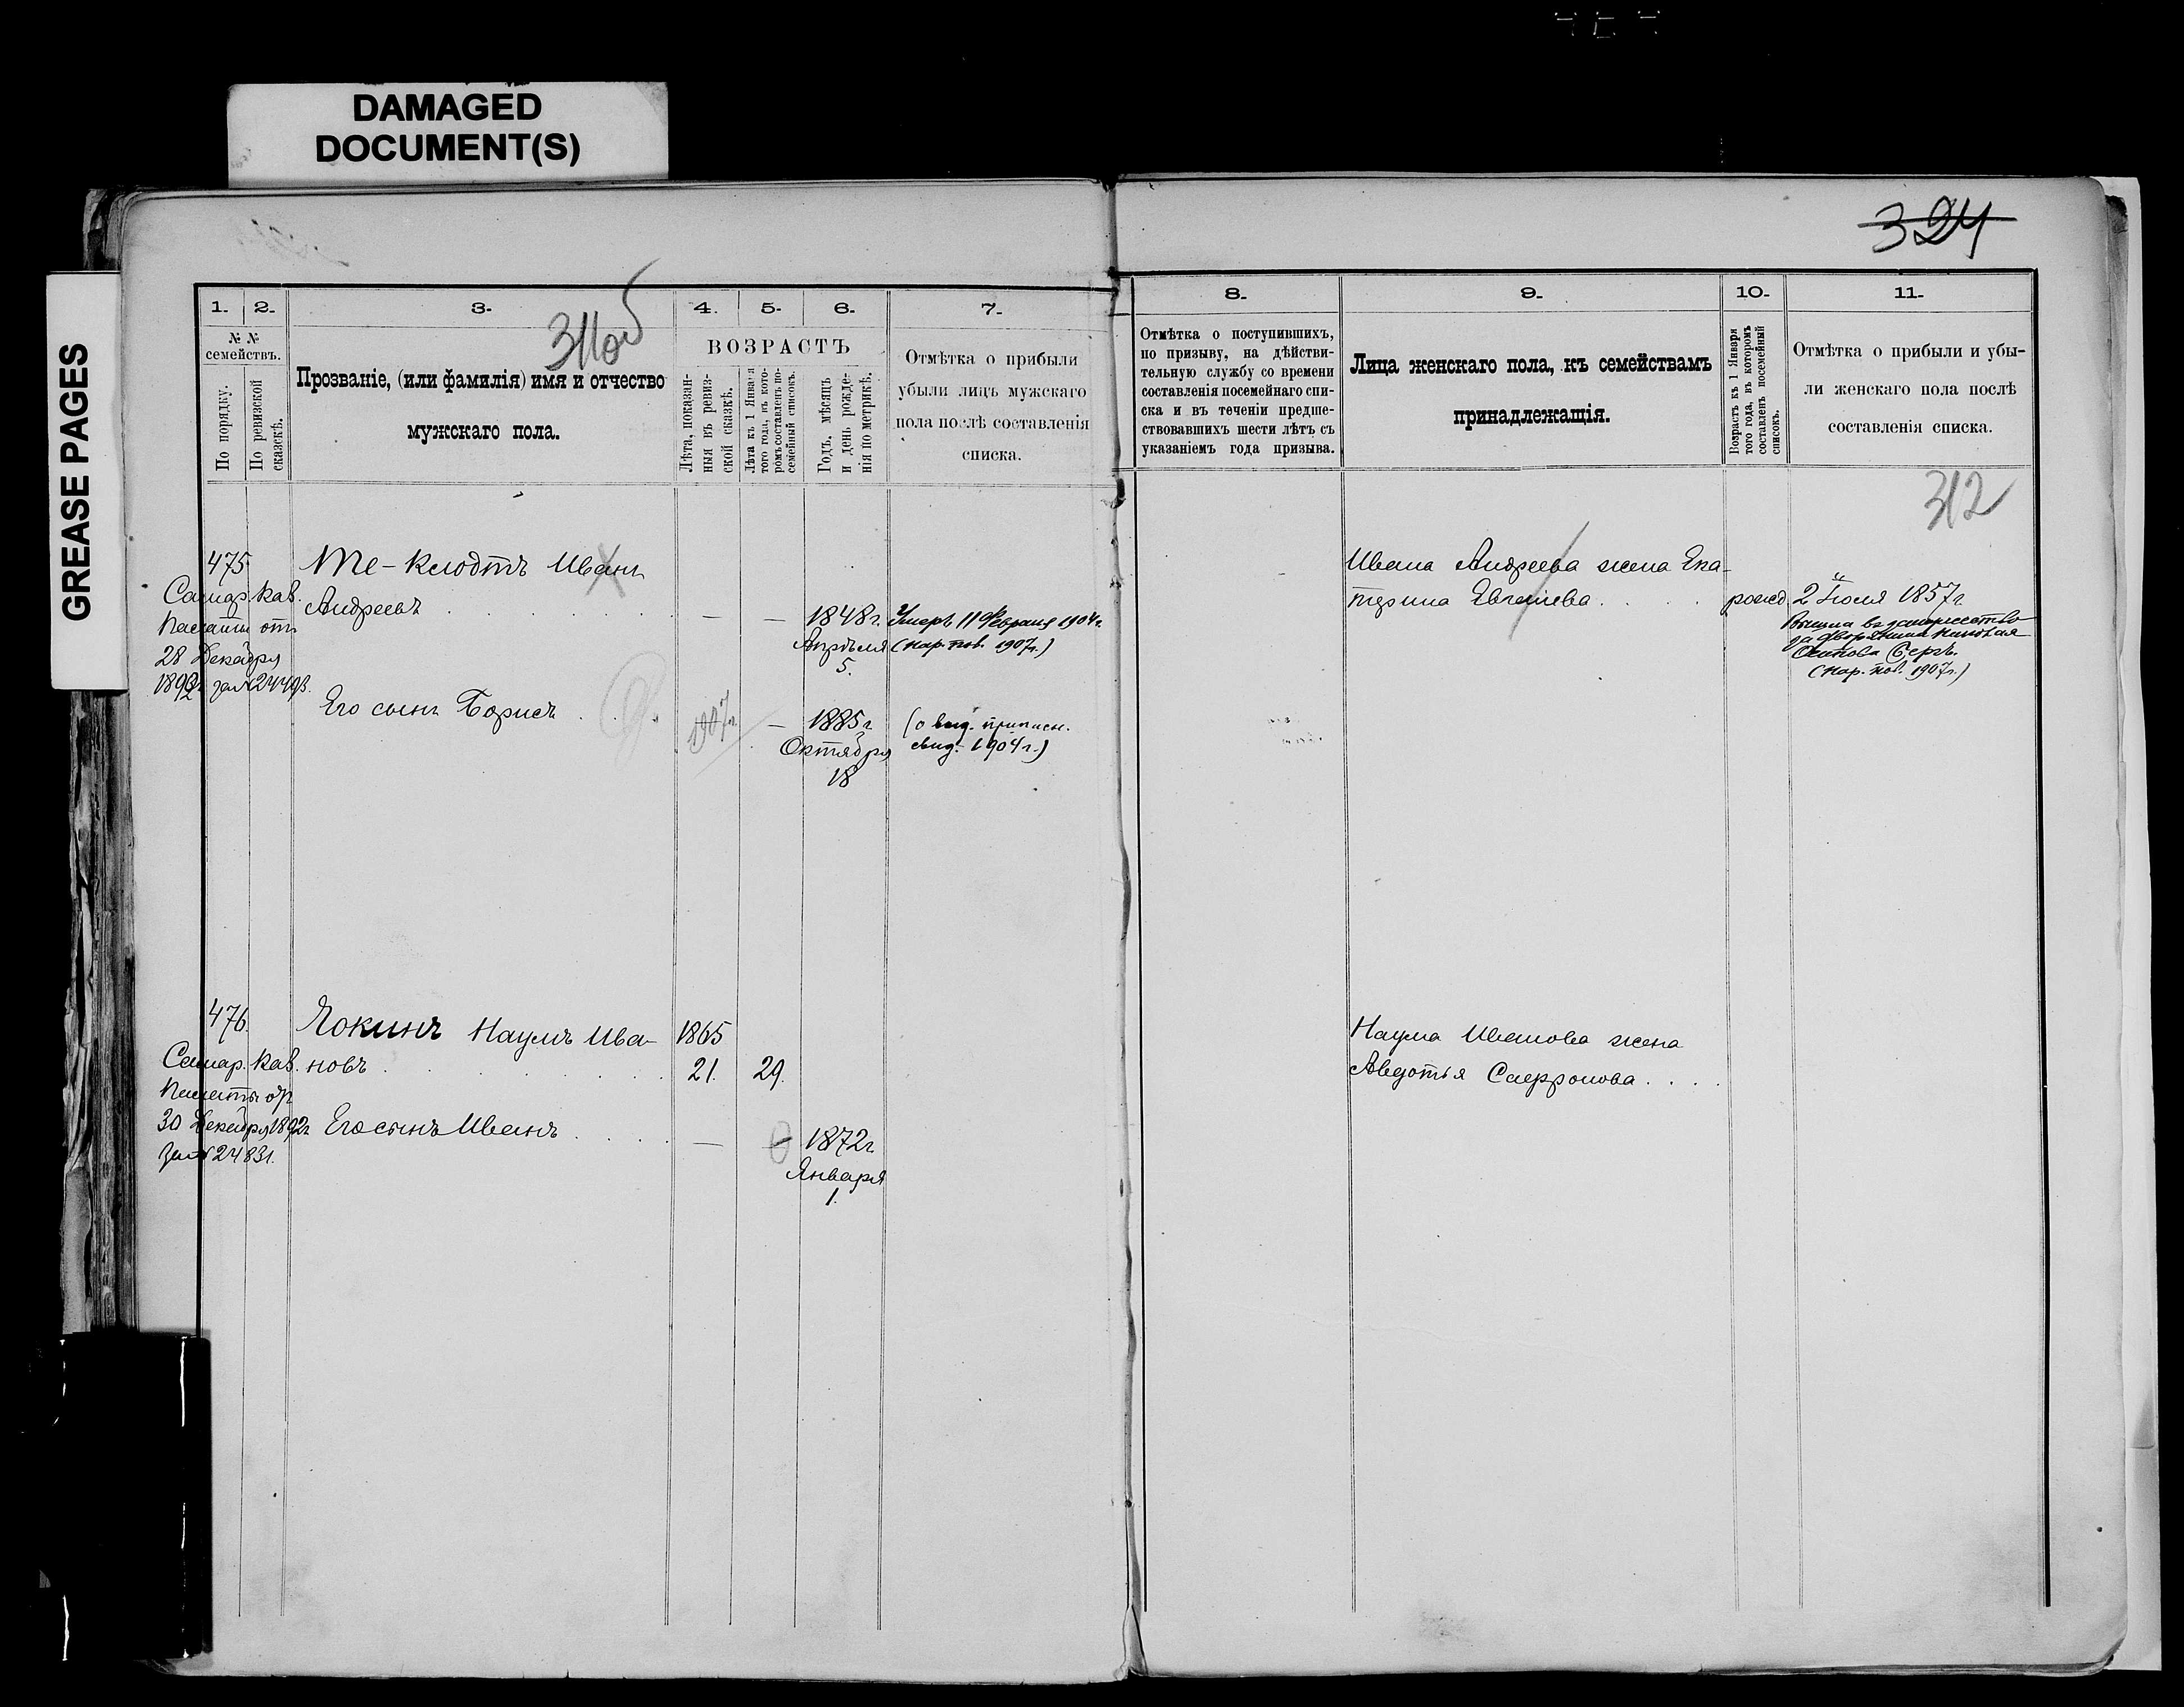 DAMAGED
DOCUMENT(S)
GREASE PAGES
324
1.
2.
3.
4.
5.
6.
7.
№ №
семействъ.
По порядку.
По ревизской
сказкѣ.
311об
Прозваніе, (или фамилія) имя и отчество
мужскаго пола.
ВОЗРАСТЪ
Лѣта, показан-
ныя въ ревиз-
ской сказкѣ.
Лѣта къ 1 Января
того года, въ кото-
ромъ составленъ по-
семейный списокъ.
Годъ, мѣсяцъ
и день рожде-
нія по метрикѣ.
Отмѣтка о прибыли
убыли лицъ мужскаго
пола послѣ составленія
списка.
475
Самар. Каз.
Палаты отъ
28 Декабря
1892г за №24493.
Те-Клодтъ Иванъ
Андреевъ . . . . . — — 1848г.
Апрѣля
5.
Умеръ 11 Февраля 1904г.
(нар. пов. 1907г.)
Его сынъ Борисъ . . . 1907г. — 1885г
Октября
18
(о выд. приписн.
свид. 1904г.)
476.
Самар. Каз.
Палаты отъ
30 Декабря 1892г
за №24831.
Якинъ Наумъ Ива- 1865
новъ . . . . . 21. 29.
Его сынъ Иванъ . . . . — — 1872г.
Января
1.
8.
9.
10.
11.
Отмѣтка о поступившихъ,
по призыву, на дѣйстви-
тельную службу со времени
составленія посемейнаго спи-
ска и въ теченіи предше-
ствовавшихъ шести лѣтъ съ
указаніемъ года призыва.
Лица женскаго пола, къ семействамъ
принадлежащія.
Возрастъ къ 1 Января
того года, въ которомъ
составленъ посемейный
списокъ.
Отмѣтка о прибыли и убы-
ли женскаго пола послѣ
составленія списка.
312
Ивана Андреева жена Ека-
терина . . . . рожд. 2 Іюля 1857г.
вышла въ замужество
за дворянина Николая
(нар. пов. 1907г.)
Наума Иванова жена
Авдотья Сафронова . . . .